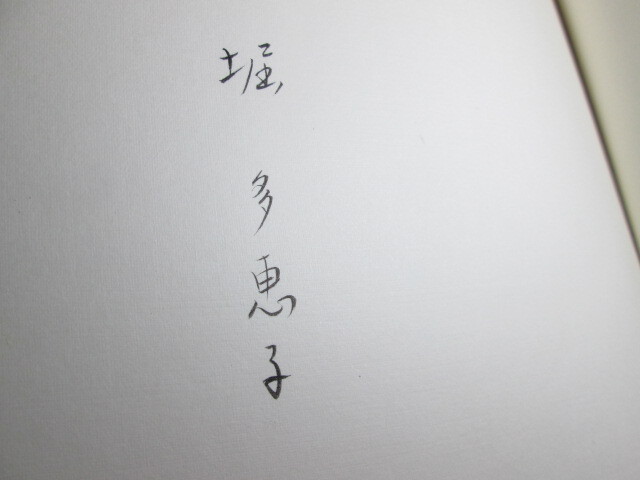 堀 多恵子